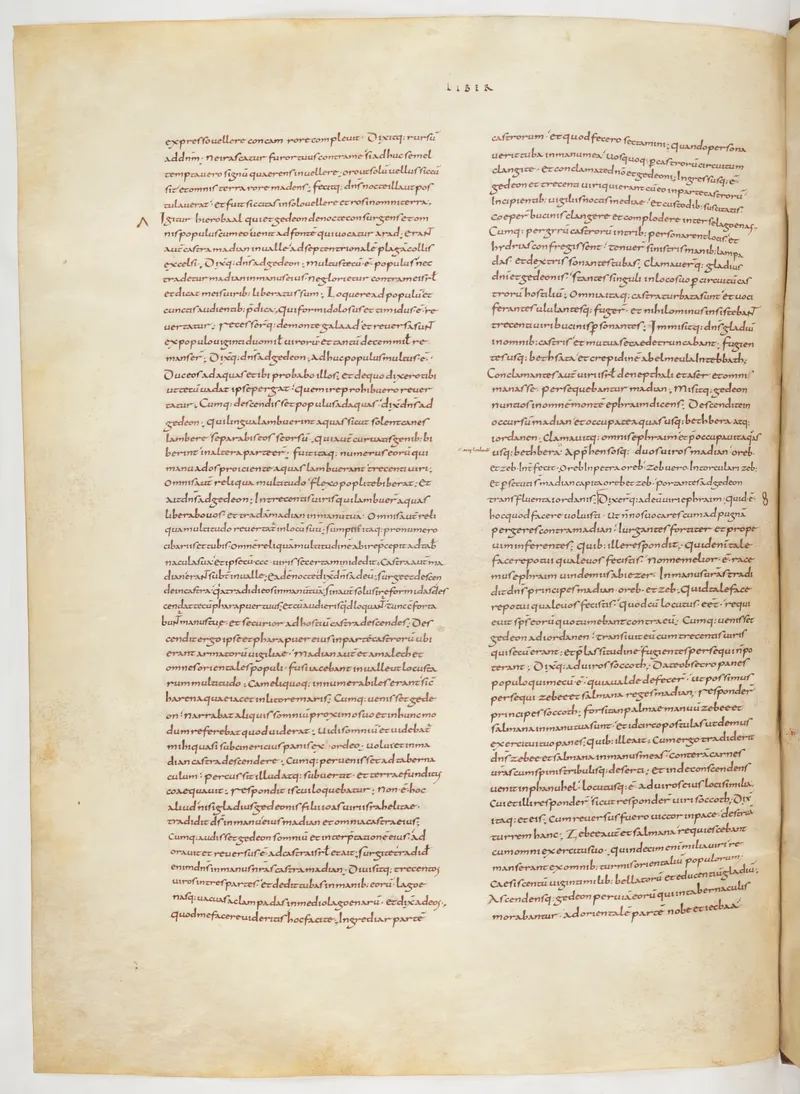 LIBER
expresso uellere concam rore compleuit. Dixitq: rursū
ad dnm. ne irascatur furor tuus contra me si adhuc semel
temptauero signū quaerens in uellere; oro ut solū uellus siccū
sit et omnis terra rore madens; fecitq: dns nocte illa ut pos
tulauerat. et fuit siccitas in solo uellere et ros in omni terra;
Igitur hierobaal qui et gedeon de nocte consurgens et om
nis populus cum eo uenit ad fontē qui uocatur arad; erant
autē castra madian in ualle ad septentrionalē plagā collis
excelsi; Dixitq: dns ad gedeon; multus tecū ē populus nec
tradetur madian in manus eius. ne glorietur contra me isrl
et dicat meis uirib: liberatus sum; Loquere ad populū et
cunctis audientib: p̄dica; qui formidolosus et timidus ē. re
uertatur; recesserq: de monte galaad et reuersa sunt
ex populo uiginti duo milt uirorū et tantū decem milt re
manser; Dixitq: dns ad gedeon; adhuc populus multus ē.
Duc eos ad aquas et ibi probabo illos; et de quo dixero tibi
ut tecū uadat ipse pergat. quem ire prohibuero reuer
tatur; Cumq: descendisset populus ad aquas. dixit dns ad
gedeon; qui lingua lambuerint aquas sicut solent canes
lambere. separabis eos seorsū; qui autē curuatis genib: bi
berint in altera parte er; fuit itaq: numerus eorū qui
manu ad os proiciente aquas lambuerant trecenti uiri;
Omnis autē reliqua multitudo flexo poplite biberat; Et
ait dns ad gedeon; In trecentis uiris qui lambuer aquas
liberabo uos. et tradā madian in manu tua. Omnis autē reli
qua multitudo reuertatur in locū suū; sumptis itaq: pro numero
cibariis et tubis. omnē reliquā multitudinē abire p̄cepit ad tab
nacula sua. et ipse cū ccc uiris se certamini dedit; Castra autē ma
dian erant subter in ualle; eadē nocte dixit dns ad eū; surge et descen
de in castra. quia tradidi eos in manu tua; sin autē solus ire formidas des
cendat tecū phara puer tuus; et cū audieris qd loquantur tunc conforta
buntur manus tuae. et securior ad hostiū castra descendes; Des
cendit ergo ipse et phara puer eius in partē castrorū ubi
erant armatorū uigiliae. Madian autē et amalech et
omnes orientales populi fusi iacebant in ualle ut locusta
rum multitudo; Cameli quoq: innumerabiles erant sic
harena quae iacet in litore maris; Cumq: uenisset gede
on. narrabat aliquis somniū proximo suo et in hunc mo
dum referebat quod uiderat; Uidi somniū et uidebat
mihi quasi subcinericius panis ex ordeo. uolui et in ma
dian castra descendere; Cumq: peruenisset ad taberna
culum. percussit illud atq: subuertit. et terrae funditus
coaequauit; respondit is cui loquebatur; Non ē hoc
aliud nisi gladius gedeonis filii ioas uiri israhelitae.
tradidit ds in manu eius madian et omnia castra eius;
Cumq: audisset gedeon somniū et interp̄tatione eius. ad
orauit et reuersus ē ad castra isrl et ait; surgite tradid
enim dns in manus nras castra madian; Diuisitq: trecentos
uiros in tres partes. et dedit tubas in manib: eorū lagoe
nasq: uacuas ac lampadas in medio lagoenarū. et dixit ad eos;
quod me facere uideritis hoc facite; Ingrediar partē
castrorum. et quod fecero sectamini; quando personu
uerit tuba in manu mea. uos quoq: p castrorū circuitum
clangite. et conclamate dno et gedeoni; Ingressusq: ē
gedeon et trecenti uiri qui erant cū eo in parte castrorū
incipientib: uigiliis noctis mediae. et custodib: suscitatis
coeper bucinis clangere et complodere inter se lagoenas;
Cumq: per gyrū castrorū in trib: personarent locis. et
hydrias confregissent. tenuer sinistris manib: lampa
das. et dextris sonantes tubas. Clamauerq: gladius
dni et gedeonis; stantes singuli in loco suo p circuitū cas
trorū hostiliū; Omnia itaq: castra turbata sunt et uoci
ferantes ululantesq: fuger. et nihilominus insistebant
trecenti uiri bucinis p̄sonantes; Immisitq: dns gladiū
in omnib: castris et mutua se caede truncabant; fugien
tes usq: bethseta et crepidinē abelmeula in tebbath;
Conclamantes autē uiri isrl de nepthali et aser et omni
manasse. persequebantur madian; Misitq: gedeon
nuntios in omnē montē ephraim dicens; Descendite in
occursū madian et occupate aquas usq: bethbera atq:
iordanen; clamauitq: omnis ephraim et p̄occupauit aquas
usq: bethbera; Apphensosq: duos uiros madian oreb
et zeb. Interfecit. Oreb in petra oreb. zeb uero in torculari zeb:
et psecuti s madian capita oreb et zeb. portantes ad gedeon
trans fluenta iordanis; Dixerq: ad eū uiri ephraim; quid ē
hoc quod facere uoluisti. Ut nos uocares cum ad pugnā
pergeres contra madian. Iurgantes fortiter et prope
uim inferentes; quib: ille respondit; quid enī tale
facere potui quale uos fecistis; Nonne melior ē race
mus ephraim uindemiis abiezer; In manus uras tradi
dit dns principes madian. oreb et zeb; Quid tale face
re potui quale uos fecistis; quod cū locutus eēt. requi
euit sps eorū quo tumebant contra eū; Cumq: uenisset
gedeon ad iordanen. transiuit eū cum trecentis uiris
qui secū erant; et p̄ lassitudine fugientes persequi n po
terant; Dixitq: ad uiros soccoth; Date obsecro panes
populo qui mecū ē. quia ualde defecer. ut possimus
persequi zebee et salmana reges madian; responder
principes soccoth; forsitan palmae manuū zebee et
salmana in manu tua sunt. et idcirco postulas ut demus
exercitui tuo panes; quib: ille ait; Cum ergo tradiderit
dns zebee et salmana in manus meas. conterā carnes
uras cum spinis tribulisq: deserti; et inde conscendens
uenit in phanuhel. locutusq: ē ad uiros eius loci similia.
Cui et illi responder. sicut responder uiri soccoth; Dix
itaq: et eis; Cum reuersus fuero uictor in pace. destruā
turrem hanc; Zebee autē et salmana requiescebant
cum omni exercitu suo. quindecim enim milia uiri re
manserant ex omnib: turmis orientaliū populorum
Caesis centū uiginti milib: bellatorū et educentiū gladiū;
Ascendensq: gedeon per uiā eorū qui in tabernaculis
morabantur. ad orientalē partē nobe et iecbaa